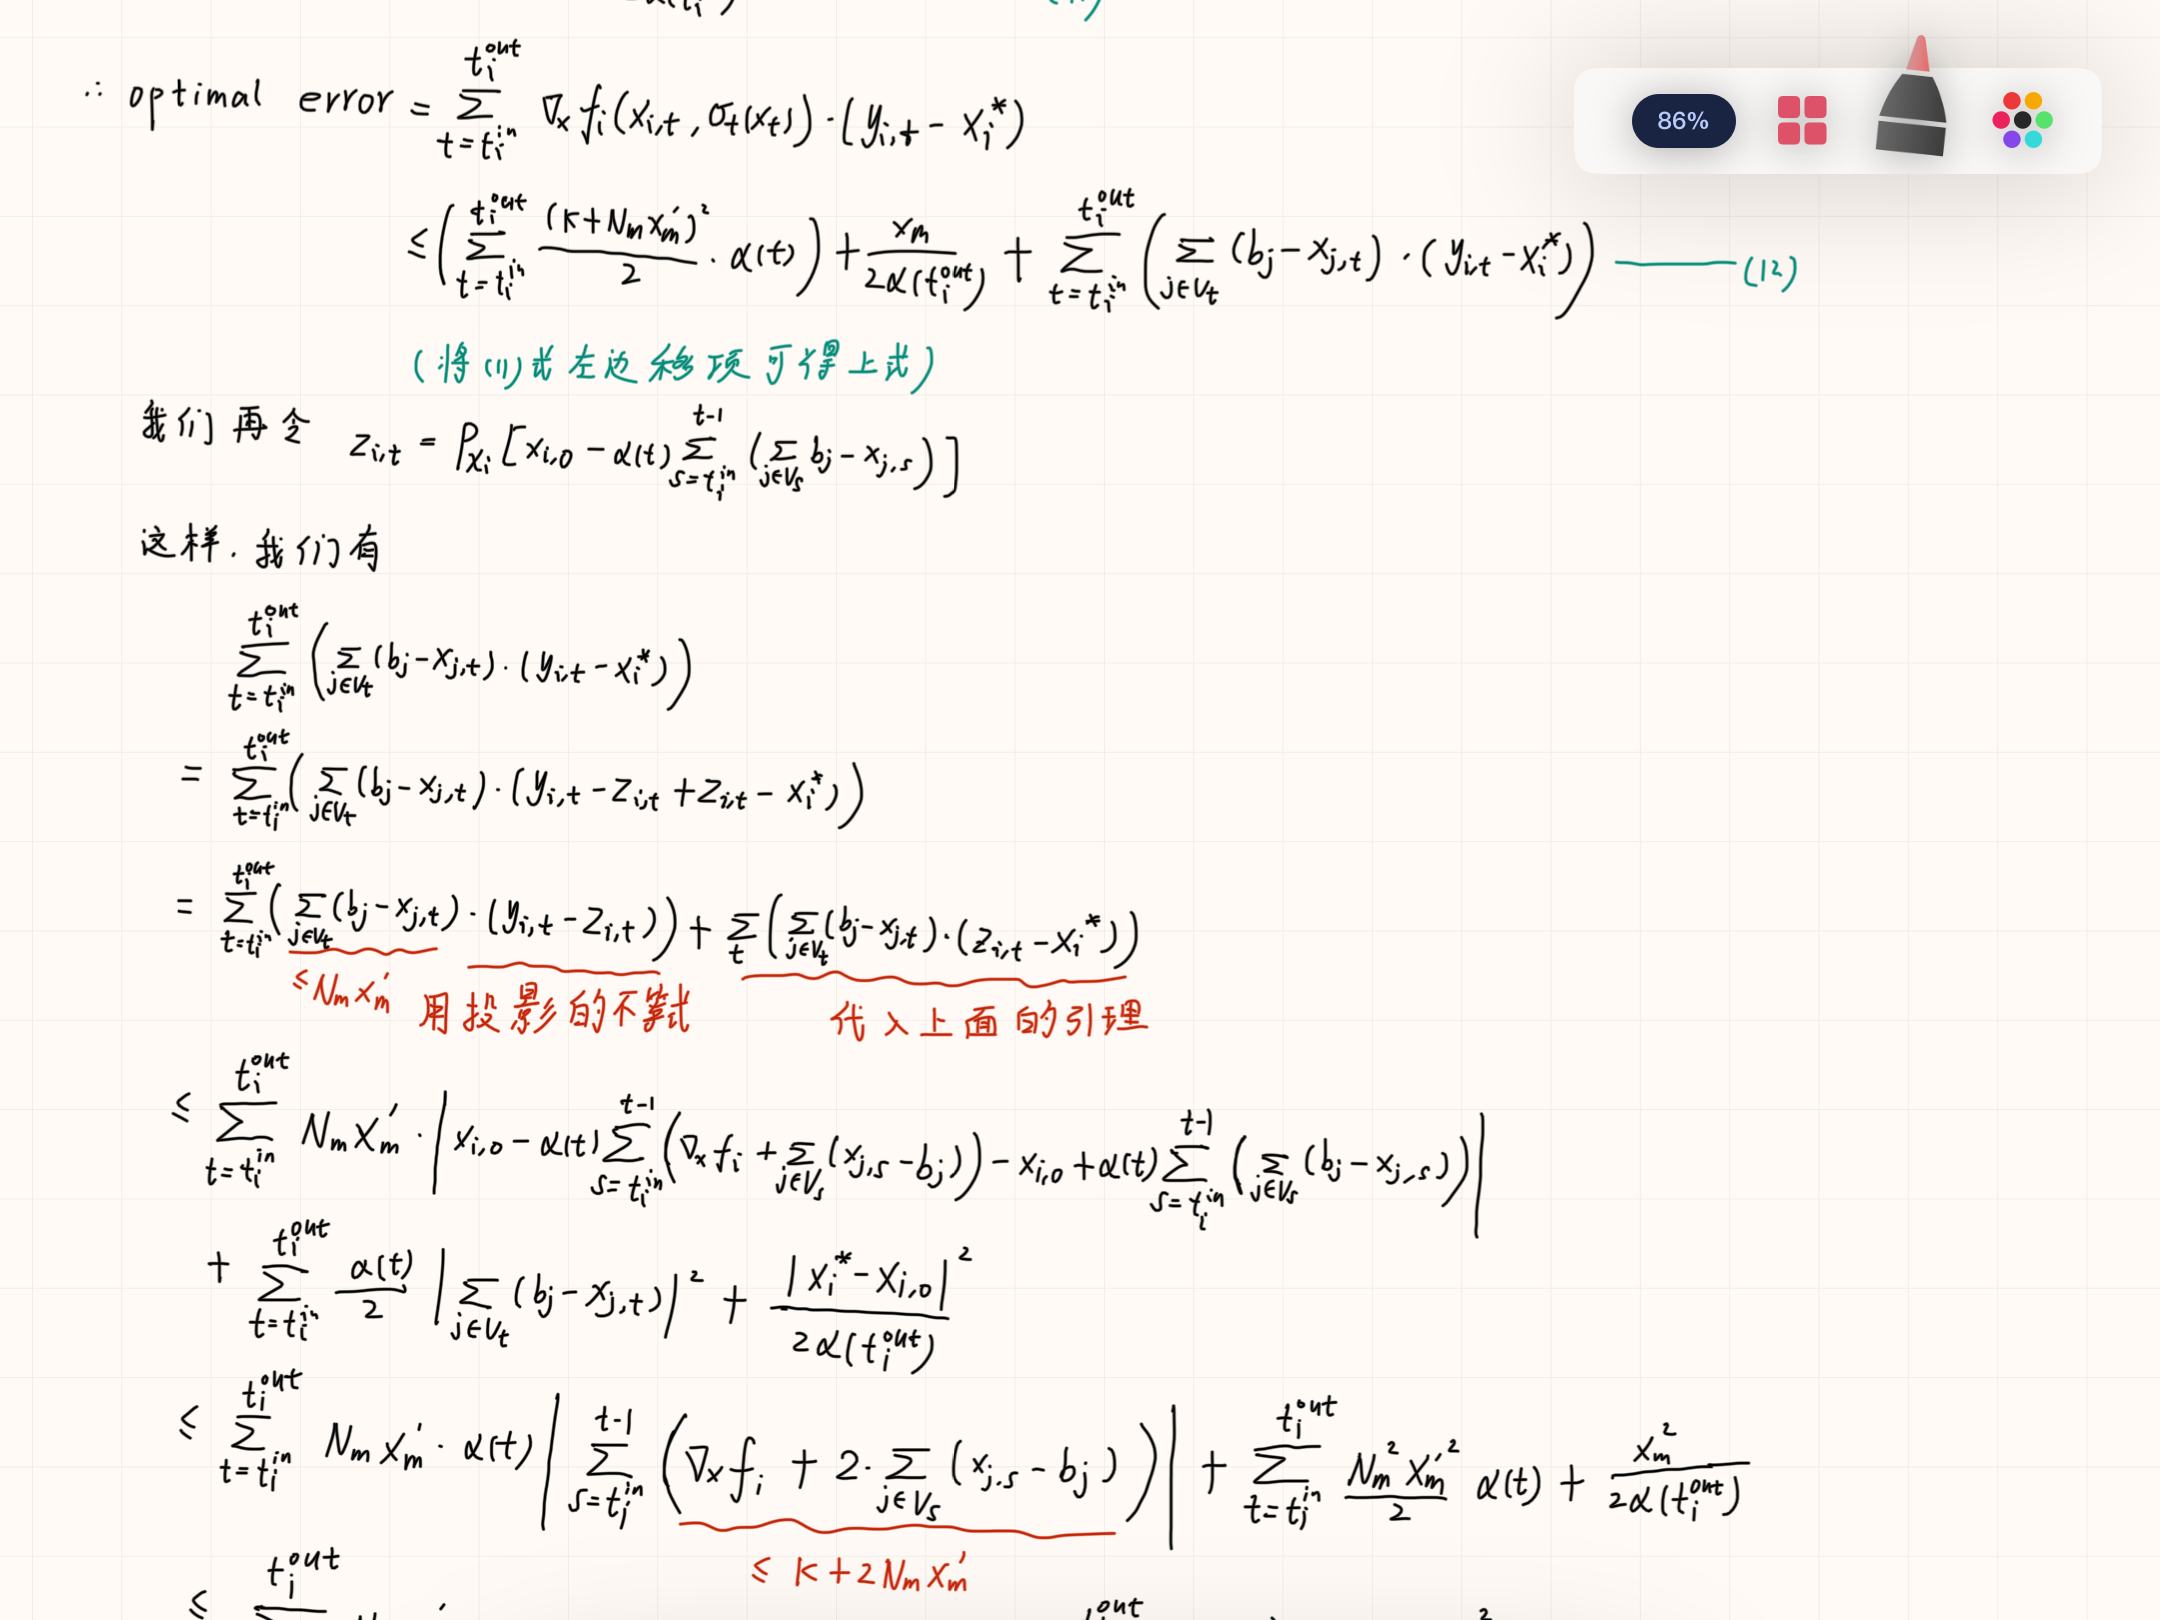 86%
∴ optimal error = \sum_{t=t_i^{in}}^{t_i^{out}} ∇_x f_i(x_{i,t}, σ_t(x_t)) · (y_{i,t} - x_i^*)
≤ (\sum_{t=t_i^{in}}^{t_i^{out}} \frac{(K+N_m x_m')^2}{2} · α(t)) + \frac{x_m}{2α(t_i^{out})} + \sum_{t=t_i^{in}}^{t_i^{out}} (\sum_{j∈V_t} (b_j - x_{j,t}) · (y_{i,t} - x_i^*)) —— (12)
(将(11)式左边移项可得上式)
我们再令 z_{i,t} = P_{χ_i}[x_{i,0} - α(t) \sum_{s=t_i^{in}}^{t-1} (\sum_{j∈V_s} b_j - x_{j,s})]
这样.我们有
\sum_{t=t_i^{in}}^{t_i^{out}} (\sum_{j∈V_t} (b_j - x_{j,t}) · (y_{i,t} - x_i^*))
= \sum_{t=t_i^{in}}^{t_i^{out}} (\sum_{j∈V_t} (b_j - x_{j,t}) · (y_{i,t} - z_{i,t} + z_{i,t} - x_i^*))
= \sum_{t=t_i^{in}}^{t_i^{out}} (\sum_{j∈V_t} (b_j - x_{j,t}) · (y_{i,t} - z_{i,t})) + \sum_t (\sum_{j∈V_t} (b_j - x_{j,t}) · (z_{i,t} - x_i^*))
≤ N_m x_m' 用投影的不等式 代入上面的引理
≤ \sum_{t=t_i^{in}}^{t_i^{out}} N_m x_m' · |x_{i,0} - α(t) \sum_{s=t_i^{in}}^{t-1} (∇_x f_i + \sum_{j∈V_s} (x_{j,s} - b_j)) - x_{i,0} + α(t) \sum_{s=t_i^{in}}^{t-1} (\sum_{j∈V_s} (b_j - x_{j,s}))|
+ \sum_{t=t_i^{in}}^{t_i^{out}} \frac{α(t)}{2} |\sum_{j∈V_t} (b_j - x_{j,t})|^2 + \frac{|x_i^* - x_{i,0}|^2}{2α(t_i^{out})}
≤ \sum_{t=t_i^{in}}^{t_i^{out}} N_m x_m' · α(t) |\sum_{s=t_i^{in}}^{t-1} (∇_x f_i + 2·\sum_{j∈V_s} (x_{j,s} - b_j))| + \sum_{t=t_i^{in}}^{t_i^{out}} \frac{N_m^2 x_m'^2}{2} α(t) + \frac{x_m^2}{2α(t_i^{out})}
≤ K + 2N_m x_m'